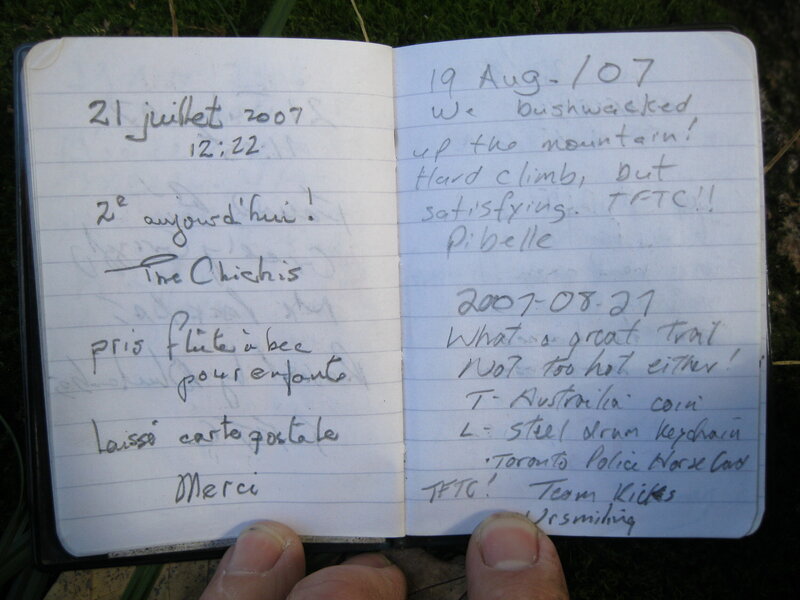 21 juillet 2007
12:22
2e aujourd'hui!
The Chickis
pris flûte à bec
pour enfants
laissé carte postale
Merci
19 Aug./07
We bushwacked
up the mountain!
Hard climb, but
satisfying. TFTC!!
Pibelle
2007-08-27
What a great trail
Not too hot either!
T- Australia coin
L- Steel drum keychain
·Toronto Police Horse Card
TFTC! Team Kicks
Ursmiling